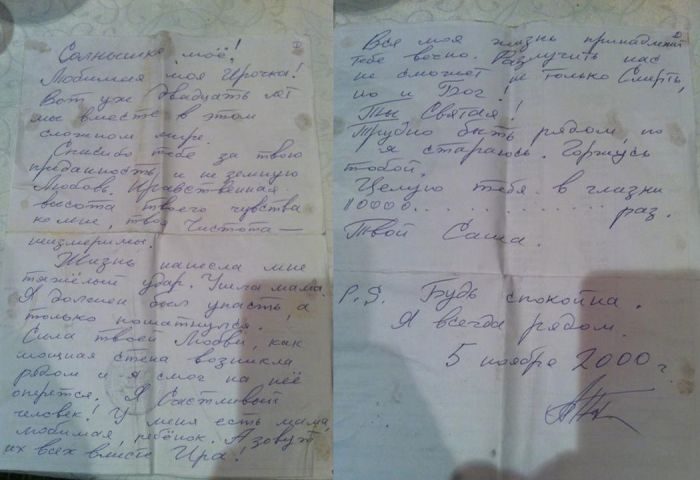 I
Солнышко моё!
Любимая моя Ирочка!
Вот уж двадцать лет
мы вместе в этом
сложном мире.
Спасибо тебе за твою
преданность и не земную
Любовь. Нравственная
высота твоего чувства
ко мне, твоя чистота —
неизмеримы.
Жизнь нанесла мне
тяжёлый удар. Ушла мама.
Я должен был упасть, а
только пошатнулся.
Сила твоей Любви, как
мощная стена возникла
рядом и я смог на неё
опереться. Я Счастливый
человек! У меня есть мама,
любимая, ребёнок. А зовут
их всех вместе Ира!
Вся моя жизнь принадлежит
тебе вечно. Разлучить нас
не сможет не только Смерть,
но и Бог!
Ты Святая!
Трудно быть рядом, но
я стараюсь. Горжусь
тобой.
Целую тебя в глазки
110000. . . . . . . . . . . . раз.
Твой Саша.
P.S. Будь спокойна.
Я всегда рядом.
5 ноября 2000 г.